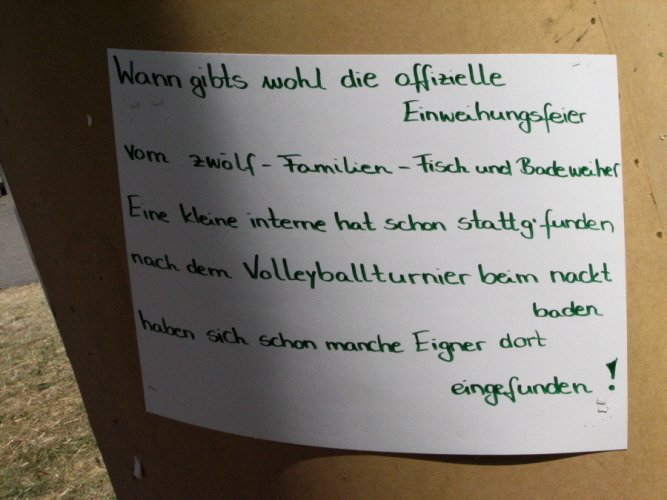 Wann gibts wohl die offizielle
Einweihungsfeier
vom zwölf-Familien-Fisch und Badeweiher
Eine kleine interne hat schon stattg'funden
nach dem Volleyballturnier beim nackt
baden
haben sich schon manche Eigner dort
eingefunden !